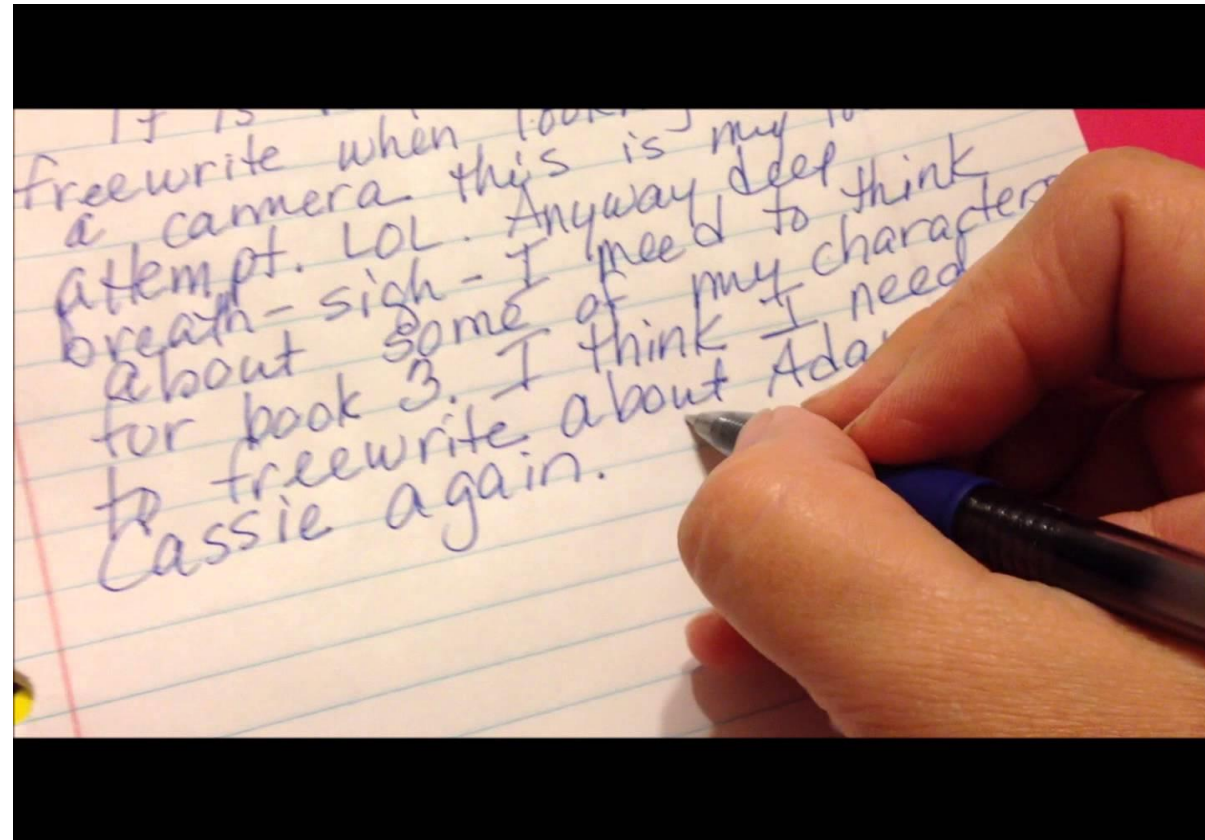 It is
freewrite when
a cammera this is my
attempt. LOL. Anyway deep
breath - sigh - I need to think
about some of my characters
for book 3. I think I need
to freewrite about
Cassie again.